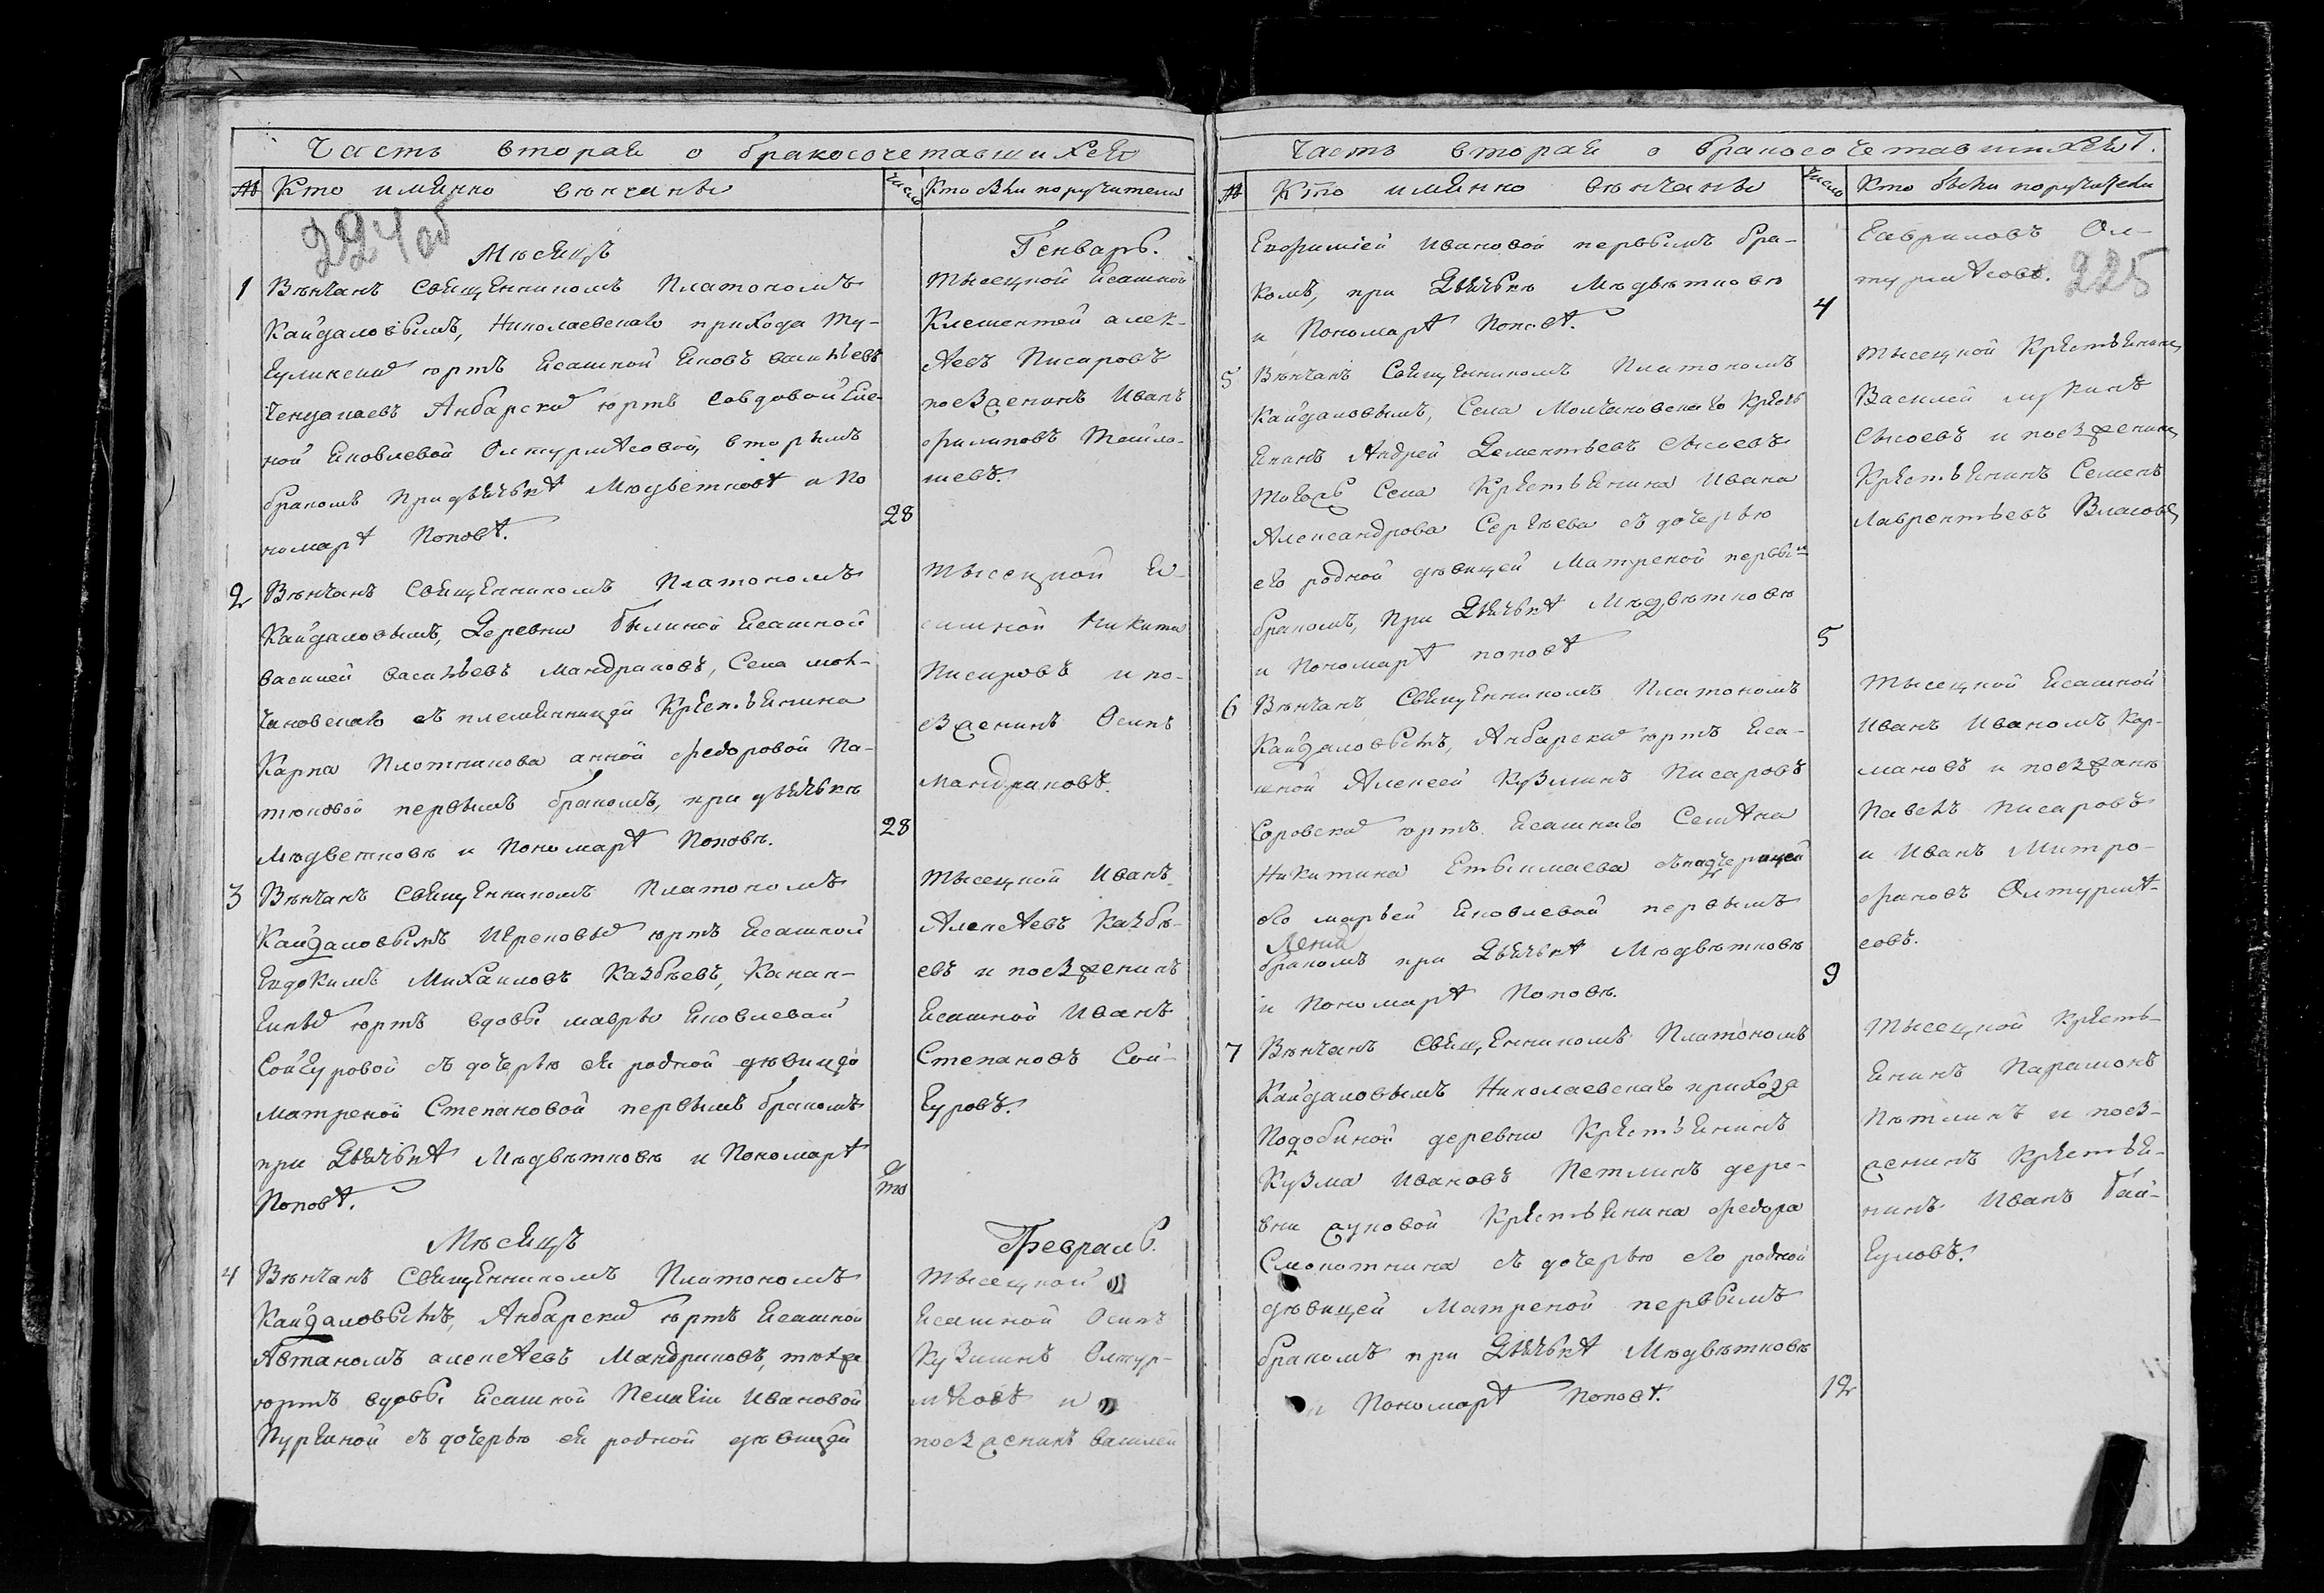 Часть вторая о бракосочетавшихся
№ Кто имянно венчаны число Кто были поручители
224об
Месяцъ Генварь.
1 Венчанъ Священникомъ Платономъ
Кайдаловымъ, Николаевскаго прихода Ту-
юртъ Ясашной Яковъ Васильевъ
Анбарскихъ юртъ Совдовой Еле-
ной Яковлевой Олтурмѣсовой, вторымъ
бракомъ при дьячьке Медветкове и по
номарѣ Поповѣ.
28
Тысецкой Ясашной
Клементей Алек-
ѣевъ Писаровъ
поезженинъ Иванъ
Филиповъ
шевъ.
2 Венчанъ Священникомъ Платономъ
Кайдаловымъ, Деревни Былиной Ясашной
Василей Васильевъ Мандраковъ, Села Мол-
чановскаго съ племянницей Крестьянина
Карпа Плотникова Анной Федоровой Па-
тюковой первымъ бракомъ, при дьячьке
Медветкове и Пономарѣ Попове.
28
Тысецкой Я-
сашной Никита
Писаровъ и по-
езженинъ Осипъ
Мандраковъ.
3 Венчанъ Священникомъ Платономъ
Кайдаловымъ Иреновыхъ юртъ Ясашной
Евдокимъ Михаиловъ Казбеевъ,
юртъ вдовы Мавры Яковлевой
Сойгуровой съ дочерью ея родной девицей
Матреной Степановой первымъ бракомъ
при Дьячькѣ Медветкове и Пономарѣ
Поповѣ.
Тысецкой Иванъ
Алексѣевъ Казбе-
евъ и поезженинъ
Ясашной Иванъ
Степановъ Сой-
гуровъ.
Месяцъ Февраль.
4 Венчанъ Священникомъ Платономъ
Кайдаловымъ, Анбарскихъ юртъ Ясашной
Автаномъ Алексѣевъ Мандраковъ, техже
юртъ вдовы Ясашной Пелагіи Ивановой
Пургиной съ дочерью ея родной девицей
Тысецкой
Ясашной Осипъ
Кузминъ Олтур-
мѣсовъ и
поезженинъ Василей
Часть вторая о бракосочетавшихся.
№ Кто имянно венчаны число Кто были поручители
Евфиміей Ивановой первымъ бра-
комъ, при Дьячьке Медветкове
и Пономарѣ Поповѣ.
4
Гавриловъ Ол-
турмѣсовъ.
225
5 Венчанъ Священникомъ Платономъ
Кайдаловымъ, Села Молчановскаго Кресть
янинъ Андрей Дементьевъ Сысоевъ
тогожъ Села Крестьянина Ивана
Александрова Сергеева съ дочерью
его родной девицей Матреной первы
бракомъ, при Дьячькѣ Медветкове
и Пономарѣ Поповѣ
5
Тысецкой Крестьянинъ
Василей Лукинъ
Сысоевъ и поезженинъ
Крестьянинъ Семенъ
Лаврентьевъ Власовъ
6 Венчанъ Священникомъ Платономъ
Кайдаловымъ, Анбарскихъ юртъ Яса-
шной Алексей Кузминъ Писаровъ
Соровскихъ юртъ Ясашнаго Семѣна
Никитина съ падчерицей
его Марьей Яковлевой первымъ
бракомъ при Дьячькѣ Медветкове
и Пономарѣ Попове.
9
Тысецкой Ясашной
Иванъ Ивановъ Кар-
маковъ и поезжане
Павелъ Писаровъ
и Иванъ Митро-
фановъ Олтурмѣ-
совъ.
7 Венчанъ Священникомъ Платономъ
Кайдаловымъ Николаевскаго прихода
Подобиной деревни Крестьянинъ
Кузма Ивановъ Петлинъ дере-
вни Жуковой Крестьянина Федора
Смокотнина съ дочерью его родной
девицей Матреной первымъ
бракомъ при Дьячькѣ Медветкове
и Пономарѣ Поповѣ.
12
Тысецкой Кресть-
янинъ Парамонъ
Петлинъ и поез-
женинъ Крестья-
нинъ Иванъ Бай-
гуловъ.